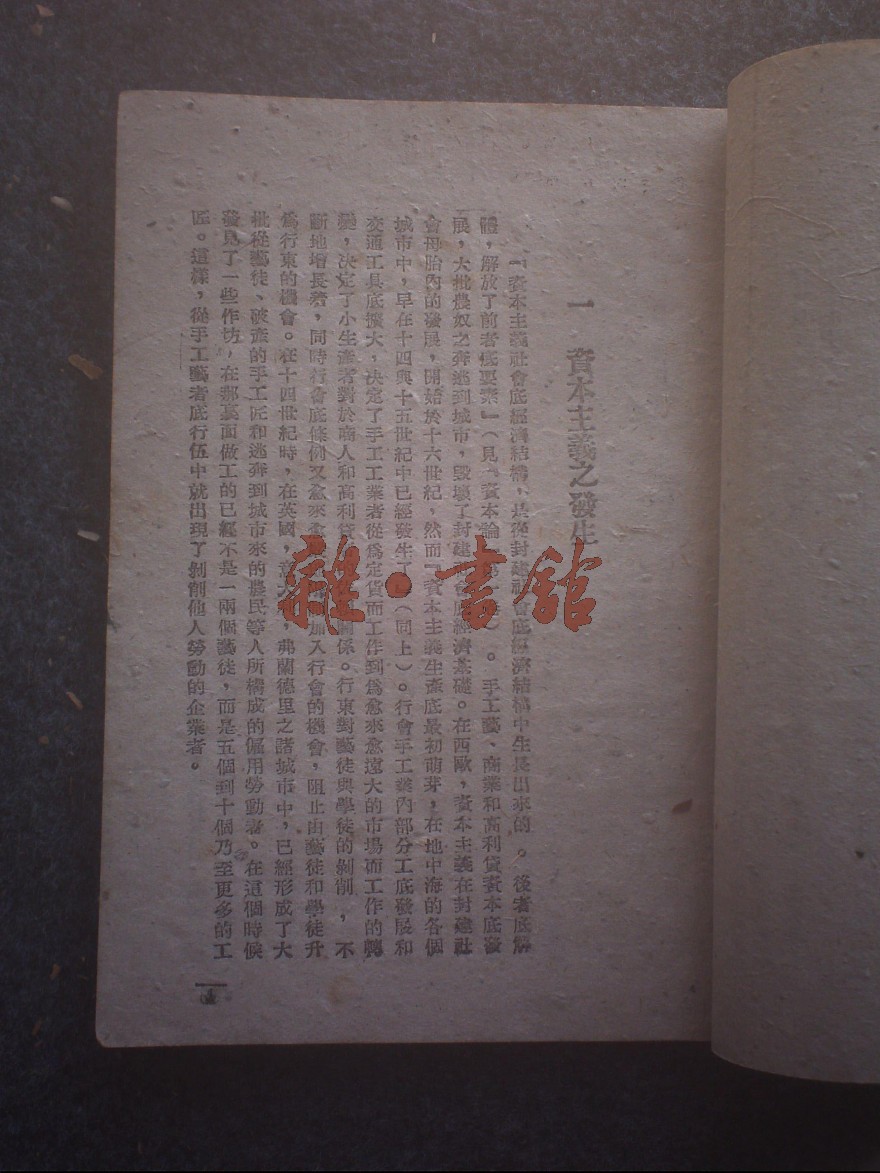 一　資本主義之發生
「資本主義社會底經濟結構，是從封建社會底經濟結構中生長出來的。後者底解
體，解放了前者底要素」（見「資本論」）。手工藝、商業和高利貸資本底發
展，大批農奴之奔逃到城市，毀壞了封建社會底經濟基礎。在西歐，資本主義在封建社
會母胎內的發展，開始於十六世紀，然而「資本主義生產底最初萌芽，在地中海的各個
城市中，早在十四與十五世紀中已經發生了」（同上）。行會手工業內部分工底發展和
交通工具底擴大，決定了手工工業者從爲定貨而工作到爲愈來愈遠大的市場而工作的轉
變，決定了小生產者對於商人和高利貸關係。行東對藝徒與學徒的剝削，不
斷地增長着，同時行會底條例又愈來愈加入行會的機會，阻止由藝徒和學徒升
爲行東的機會。在十四世紀時，在英國，意大利，弗蘭德里之諸城市中，已經形成了大
批從藝徒、破產的手工匠和逃奔到城市來的農民等人所構成的僱用勞動者。在這個時候
發見了一些作坊，在那裏面做工的已經不是一兩個藝徒，而是五個到十個乃至更多的工
匠。這樣，從手工藝者底行伍中就出現了剝削他人勞動的企業者。
雜·書舘